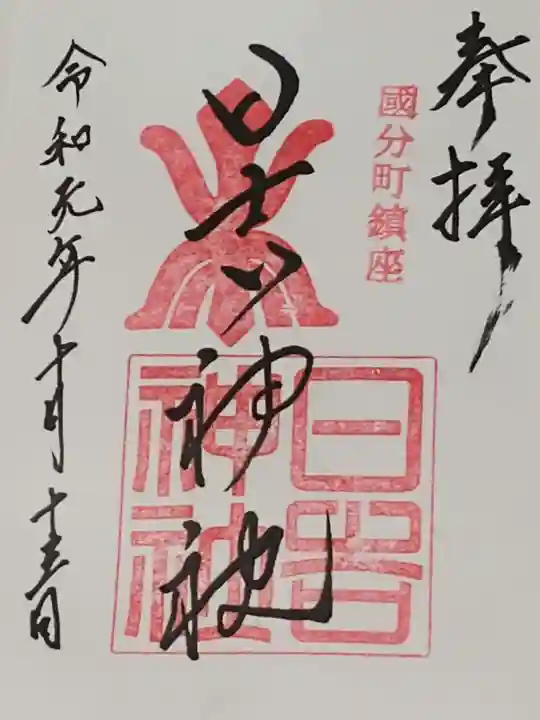 奉拝
國分町鎮座
日吉神社
日吉
神社
令和元年十月十日